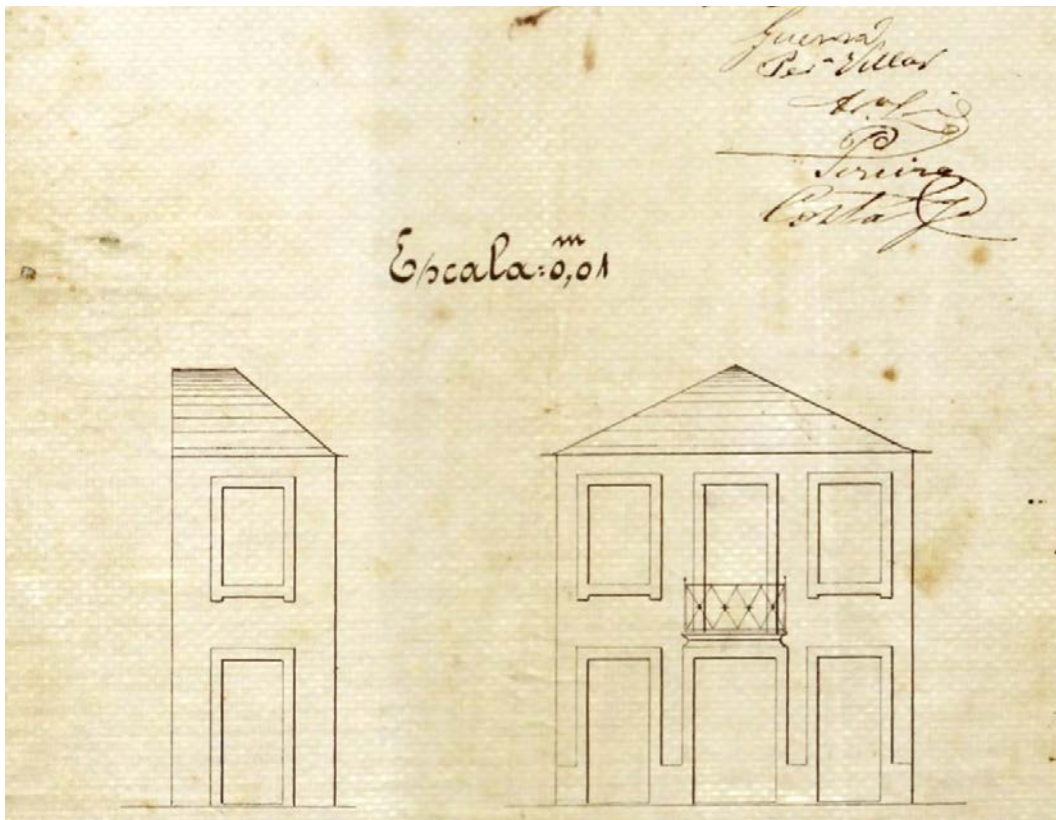 Guerra
Per.ª Villar
Pereira
Costa
Escala: 0,01
m